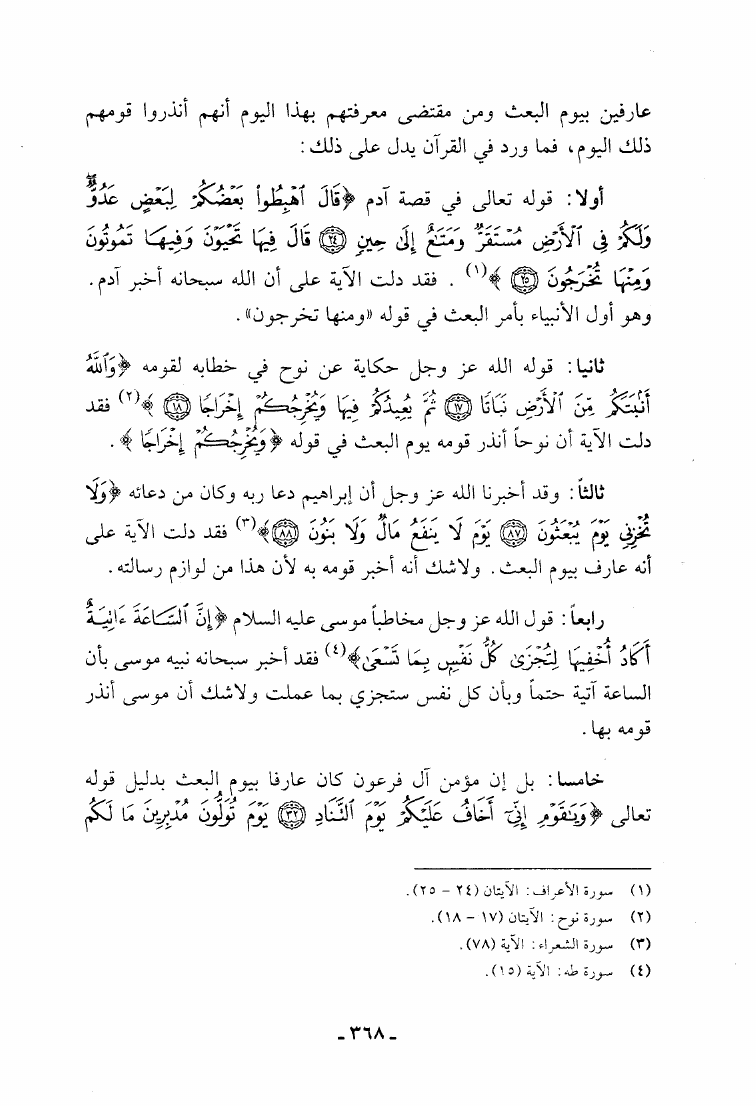 عارفين بيوم البعث ومن مقتضى معرفتهم بهذا اليوم أنهم أنذروا قومهم
ذلك اليوم، فما ورد في القرآن يدل على ذلك :
أولا: قوله تعالى في قصة آدم ﴿قَالَ ٱهْبِطُوا۟ بَعْضُكُمْ لِبَعْضٍ عَدُوٌّۖ
وَلَكُمْ فِى ٱلْأَرْضِ مُسْتَقَرٌّ وَمَتَـٰعٌ إِلَىٰ حِينٍ ﴿٢٤﴾ قَالَ فِيهَا تَحْيَوْنَ وَفِيهَا تَمُوتُونَ
وَمِنْهَا تُخْرَجُونَ ﴿٢٥﴾ ﴾(١) . فقد دلت الآية على أن الله سبحانه أخبر آدم.
وهو أول الأنبياء بأمر البعث في قوله «ومنها تخرجون».
ثانيا: قوله الله عز وجل حكاية عن نوح في خطابه لقومه ﴿وَٱللَّهُ
أَنۢبَتَكُم مِّنَ ٱلْأَرْضِ نَبَاتًا ﴿١٧﴾ ثُمَّ يُعِيدُكُمْ فِيهَا وَيُخْرِجُكُمْ إِخْرَاجًا ﴿١٨﴾ ﴾(٢) فقد
دلت الآية أن نوحاً أنذر قومه يوم البعث في قوله ﴿وَيُخْرِجُكُمْ إِخْرَاجًا ﴾ .
ثالثاً: وقد أخبرنا الله عز وجل أن إبراهيم دعا ربه وكان من دعائه ﴿وَلَا
تُخْزِنِى يَوْمَ يُبْعَثُونَ ﴿٨٧﴾ يَوْمَ لَا يَنفَعُ مَالٌ وَلَا بَنُونَ ﴿٨٨﴾﴾(٣) فقد دلت الآية على
أنه عارف بيوم البعث. ولاشك أنه أخبر قومه به لأن هذا من لوازم رسالته.
رابعاً: قول الله عز وجل مخاطباً موسى عليه السلام ﴿إِنَّ ٱلسَّاعَةَ ءَاتِيَةٌ
أَكَادُ أُخْفِيهَا لِتُجْزَىٰ كُلُّ نَفْسٍۭ بِمَا تَسْعَىٰ﴾(٤) فقد أخبر سبحانه نبيه موسى بأن
الساعة آتية حتماً وبأن كل نفس ستجزي بما عملت ولاشك أن موسى أنذر
قومه بها.
خامسا: بل إن مؤمن آل فرعون كان عارفا بيوم البعث بدليل قوله
تعالى ﴿وَيَـٰقَوْمِ إِنِّىٓ أَخَافُ عَلَيْكُمْ يَوْمَ ٱلتَّنَادِ ﴿٣٢﴾ يَوْمَ تُوَلُّونَ مُدْبِرِينَ مَا لَكُم
(١) سورة الأعراف: الآيتان (٢٤ - ٢٥).
(٢) سورة نوح: الآيتان (١٧ - ١٨).
(٣) سورة الشعراء: الآية (٧٨).
(٤) سورة طه: الآية (١٥).
ـ ٣٦٨ ـ